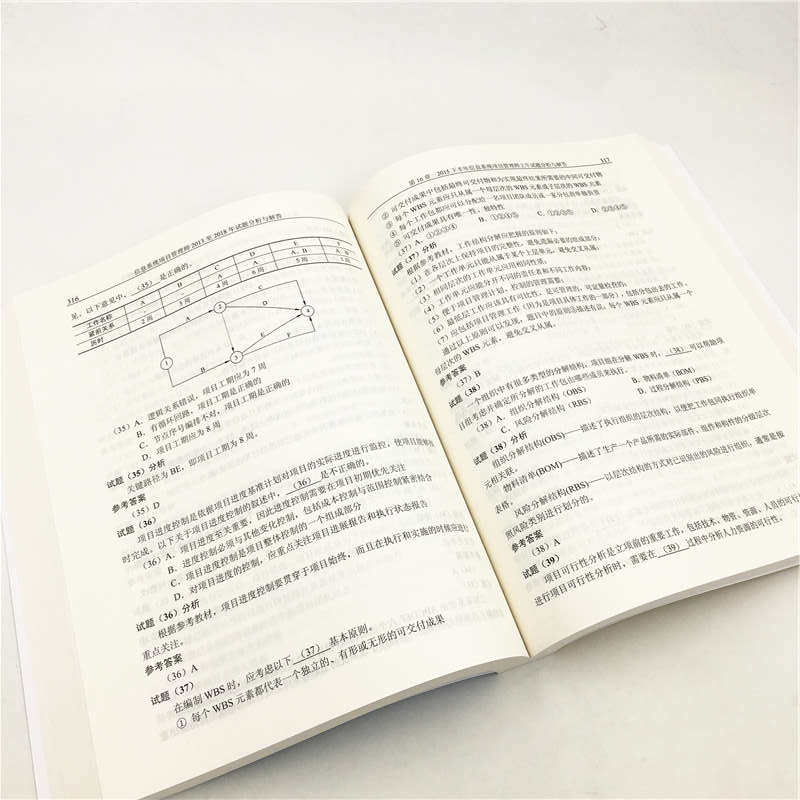 316 信息系统项目管理师 2013 至 2018 年试题分析与解答
见，以下意见中，（35）是正确的。
工作名称 A B C D E F
紧前关系 A A A、B A、B
历时 2 周 3 周 4 周 6 周 5 周 1 周
A B C D E F
1 2 3 4
（35）A．逻辑关系错误，项目工期应为 7 周
B．有循环回路，项目工期是正确的
C．节点序号编排不对，项目工期是正确的
D．项目工期应为 8 周
试题（35）分析
关键路径为 BE，即项目工期为 8 周。
参考答案
（35）D
试题（36）
项目进度控制是依据项目进度基准计划对项目的实际进度进行监控，使项目能够按
时完成。以下关于项目进度控制的叙述中，（36）是不正确的。
（36）A．项目进度至关重要，因此进度控制需要在项目初期优先关注
B．进度控制必须与其他变化控制，包括成本控制与范围控制紧密结合
C．项目进度控制是项目整体控制的一个组成部分
D．对项目进度的控制，应重点关注项目进展报告和执行状态报告
试题（36）分析
根据参考教材，项目进度控制要贯穿于项目始终，而且在执行和实施的时候应进行
重点关注。
参考答案
（36）A
试题（37）
在编制 WBS 时，应考虑以下（37）基本原则。
① 每个 WBS 元素都代表一个独立的、有形或无形的可交付成果
第 16 章 2015 下半年信息系统项目管理师上午试题分析与解答 317
② 可交付成果中包括最终可交付物和为实现最终结果所需要的中间可交付物
③ 每个 WBS 元素应只从属一个母层次的 WBS 元素或子层次的 WBS 元素
④ 每个工作包都应可以分配给一名项目团队成员或一家分包商单独负责
⑤ 可交付成果具有唯一性、独特性
（37）A．①②③④ B．①③④⑤ C．①②③⑤ D．②③④⑤
试题（37）分析
根据参考教材，工作结构分解应把握的原则如下：
（1）在各层次上保持项目的完整性，避免遗漏必要的组成部分；
（2）一个工作单元只能从属于某个上层单元，避免交叉从属；
（3）相同层次的工作单元应用相同性质；
（4）工作单元应能分开不同的责任者和不同工作内容；
（5）便于项目管理计划、控制的管理需要；
（6）最低层工作应该具有可比性，是可管理的，可定量检查的；
（7）应包括项目管理工作（因为是项目具体工作的一部分），包括分包出去的工作。
通过以上原则可以发现，题目中的原则③描述有误，每个 WBS 元素应只从属一个
母层次的 WBS 元素，避免交叉从属。
参考答案
（37）B
试题（38）
一个组织中有很多类型的分解结构，项目组在分解 WBS 时，（38）可以帮助项
目组考虑并确定所分解的工作包由哪些成员来执行。
（38）A．组织分解结构（OBS） B．物料清单（BOM）
C．风险分解结构（RBS） D．过程分解结构（PBS）
试题（38）分析
组织分解结构(OBS)——描述了执行组织的层次结构，以便把工作包同执行组织单
元相关联。
物料清单(BOM)——描述了生产一个产品所需的实际部件、组件和构件的分级层次
表格。
风险分解结构(RBS)——以层次结构的方式对已识别出的风险进行组织，通常是按
照风险类别进行划分的。
参考答案
（38）A
试题（39）
项目可行性分析是立项前的重要工作，包括技术、物资、资源、人员的可行性
进行项目可行性分析时，需要在（39）过程中分析人力资源的可行性。